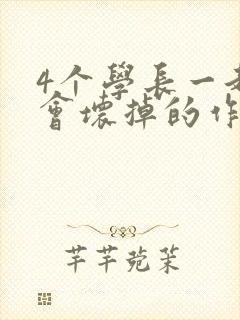 4个學長一
會壞掉的作
芊芊菀茉